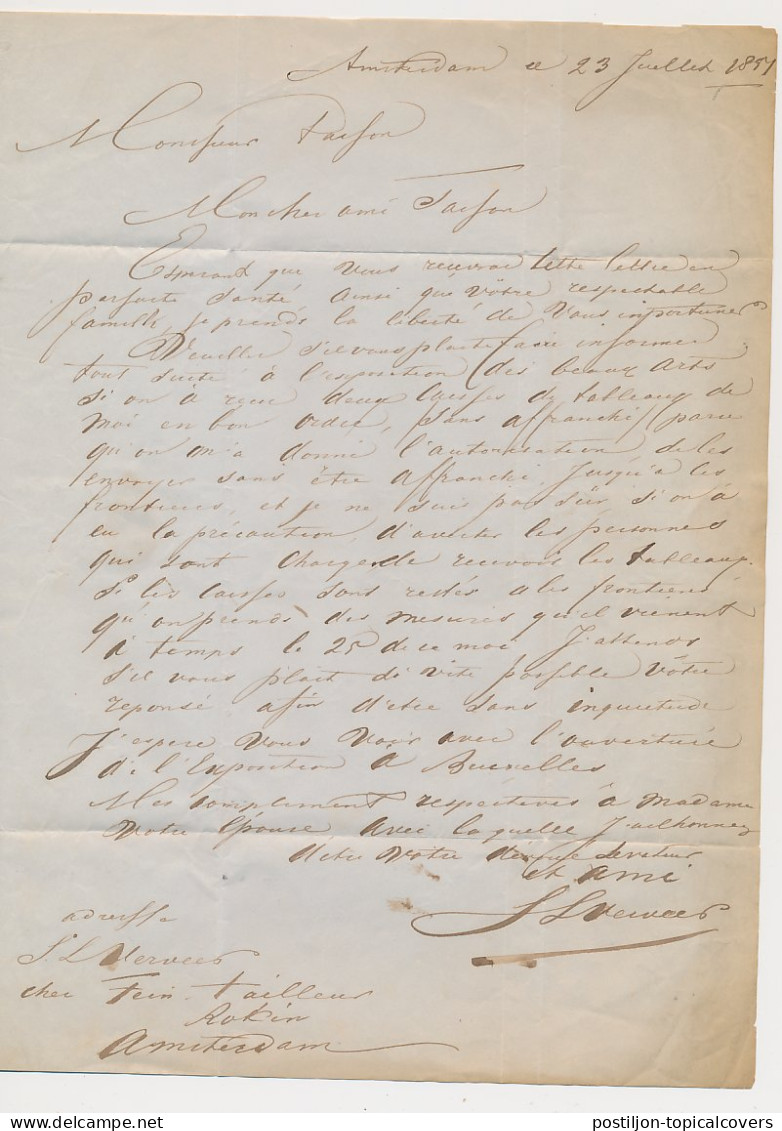 Amsterdam ce 23 Juillet 1851
Monsieur
Mon cher ami
Esperant que vous recevrai cette lettre en
parfaite santé ainsi que vôtre respectable
famille, je prends la liberté de vous importuner
Veuillez s'il vous plait faire informer
tout suite à l'exposition des beaux Arts
si on a recu deux caisses de tableaux de
moi en bon ordre, sans affranchi parce
qu'on m'a donné l'autorisation de les
envoyer sans être affranchi, Jusqu'à les
frontieres, et je ne suis pas sûr si on à
eu la précaution, d'averter les personnes
qui sont charge de recevoir les tableaux.
Si les caisses sont restés a les frontieres
qu'on prends des mesures qu'el vienent
à temps le 25 de ce moi J'attends
s'il vous plait di vite possible vôtre
reponse afin d'etre sans inquietude
J'espere vous voir avec l'ouverture
de l'Exposition à Bruxelles
Mes complement respectives à Madame
votre épouse, avec laquelle J'ai l'honneur
d'etre votre serviteur
et ami
S L Verveer
adresse
S. L Verveer
chez Fein. tailleur
Rokin
Amsterdam
postiljon-topicalcovers